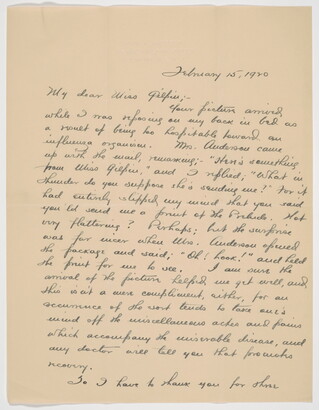 February 15, 1920
My dear Miss Gilpin;-
Your picture arrived
while I was reposing on my back in bed as
a result of being too hospitable toward an
influenza organism. Mrs. Anderson came
up with the mail, remarking;- "Here's something
from Miss Gilpin," and I replied; "What in
thunder do you suppose she's sending me?" For it
had entirely slipped my mind that you said
you'd send me a print of the Prelude. Not
very flattering? Perhaps; but the surprise
was far nicer when Mrs. Anderson opened
the package and said; "Oh! Look!" and held
the print for me to see. I am sure the
arrival of the picture helped me get well, and
this is not a mere compliment, either, for an
occurrence of the sort tends to take one's
mind off the miscellaneous aches and pains
which accompany the miserable disease, and
any doctor will tell you that promotes
recovery.
So I have to thank you for three